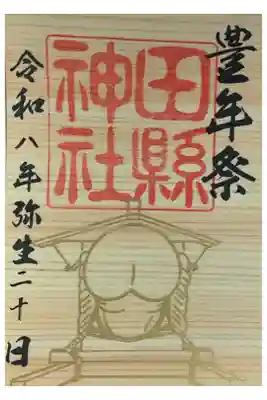 豊年祭
田縣神社
令和八年弥生二十日